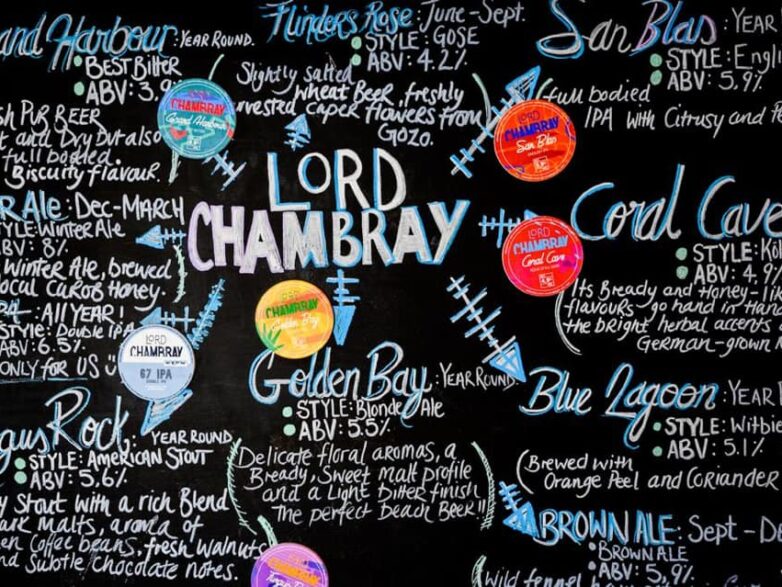 and Harbour: YEAR ROUND.
BEST BITTER
ABV: 3.9
sh PUB BEER
t and Dry but also
full bodied.
Biscuity flavour.
Flinders Rose: June-Sept.
STYLE: GOSE
ABV: 4.2%
Slightly salted
Wheat Beer, freshly
harvested caper flowers from
GOZO.
San Blas: YEAR
STYLE: Engli
ABV: 5.9%
full bodied
IPA with Citrusy and
LORD
CHAMBRAY
Grand Harbour
LORD
CHAMBRAY
San Blas
LORD
CHAMBRAY
R ALE: DEC-MARCH
STYLE: WINTER ALE
ABV: 8%
WINTER ALE, brewed
local CAROB HONEY.
ALL YEAR!
STYLE: Double IPA
ABV: 6.5%
ONLY FOR US
LORD
CHAMBRAY
67 IPA
LORD
CHAMBRAY
Coral Cave
LORD
CHAMBRAY
Golden Bay
Coral Cave
STYLE: Kol
ABV: 4.9%
Its Bready and Honey-li
flavours go hand in Hand
the bright herbal accents
GERMAN-grown
Golden Bay: YEAR ROUND.
STYLE: Blonde Ale
ABV: 5.5%
Delicate floral aromas, a
Bready, Sweet malt profile
and a Light Bitter finish
The perfect Beach Beer"
Blue Lagoon: YEAR
STYLE: Witbie
ABV: 5.1%
Brewed with
Orange Peel and Coriander
gus Rock: YEAR ROUND
STYLE: AMERICAN STOUT
ABV: 5.6%
y Stout with a rich Blend
ark malts, aroma of
en coffee beans, fresh walnuts
and Subtle Chocolate notes.
LORD
CHAMBRAY
BROWN ALE: Sept-D
BROWN ALE
ABV: 5.9%
Wild fennel